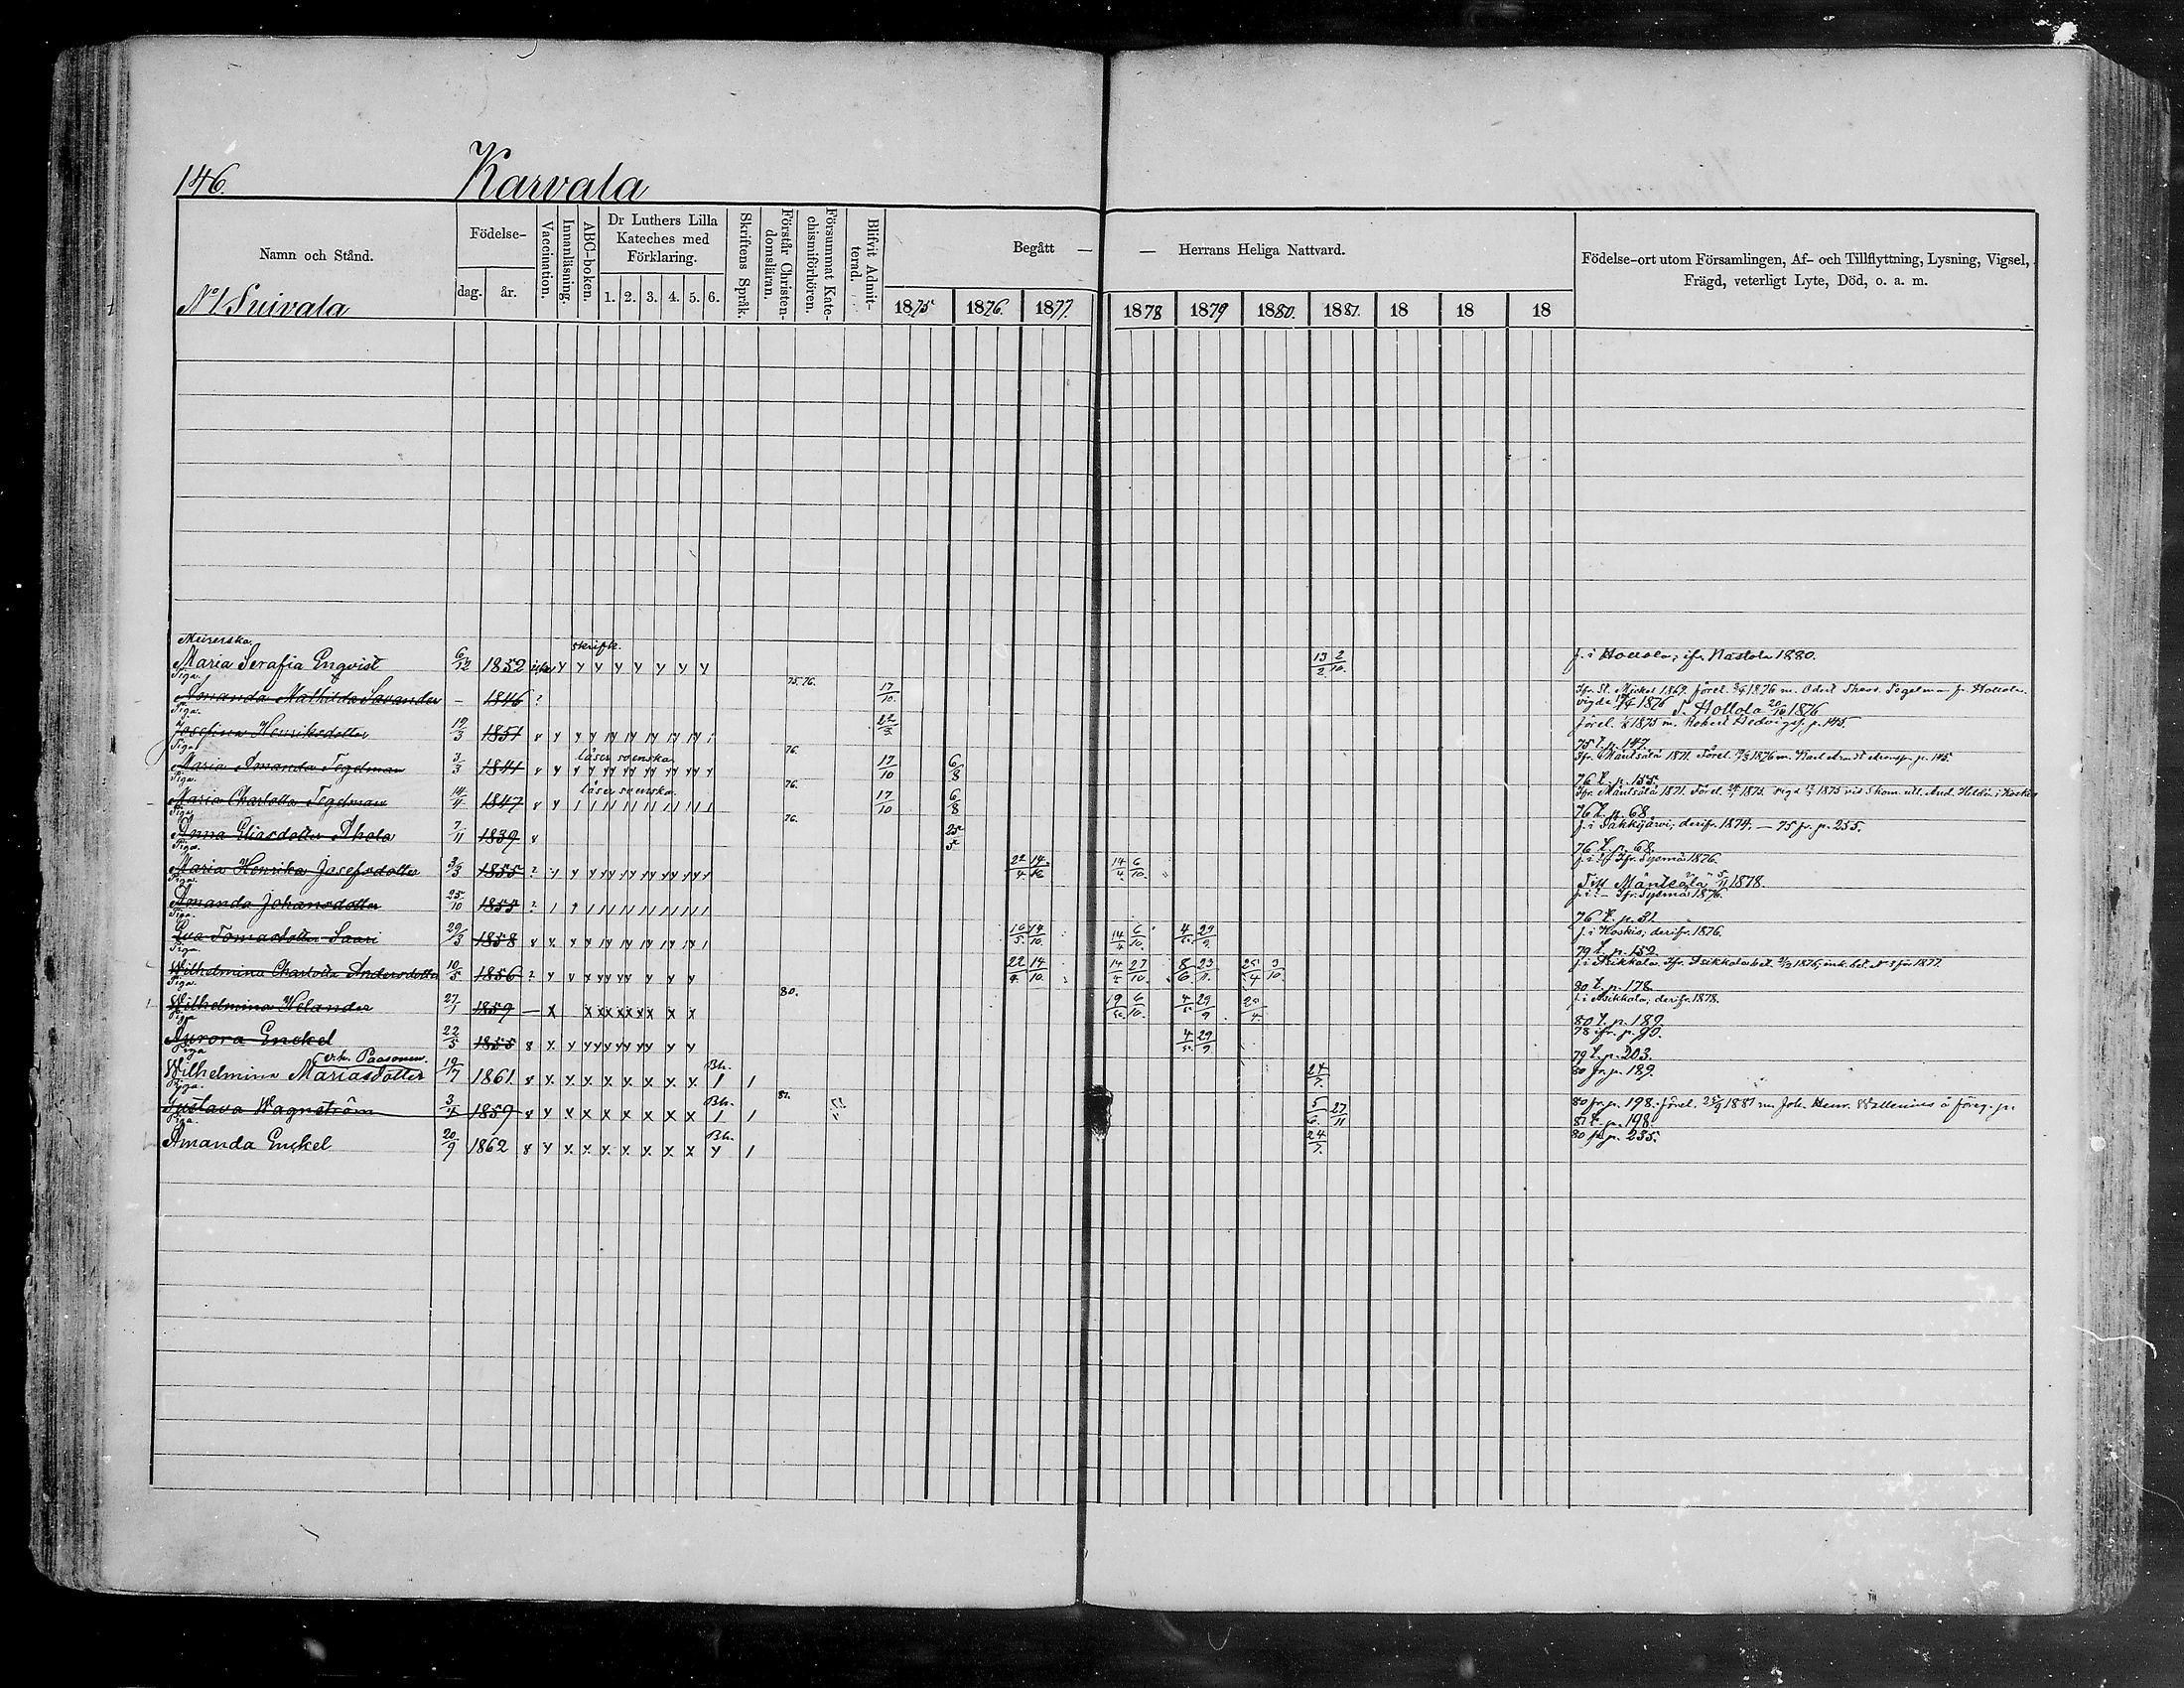 146. Karvala
Namn och Stånd.
Födelse-
dag. år.
Vaccination.
Innanläsning.
ABC-boken.
Dr Luthers Lilla Kateches med Förklaring.
1. 2. 3. 4. 5. 6.
Skriftens Språk.
Förstår Christendomsläran.
Försummat Katechismiförhören.
Blifvit Admitterad.
Begått — — Herrans Heliga Nattvard.
1875 1876. 1877. 1878 1879 1880. 1881. 18 18 18
Födelse-ort utom Församlingen, Af- och Tillflyttning, Lysning, Vigsel,
Frägd, veterligt Lyte, Död, o. a. m.
No 1 Suivala
skriftk.
Maria Serafia Enqvist 6/12 1852 y y y y y y y y 13/2 2/10. f. i Hollola; ifr. Nastola 1880.
Piga.
Amanda Mathilda Savander – 1846 ? 75. 76. 17/10. Ifr. St. Mickel 1869.
1876 T. Hollola 20/10 1876
Piga.
Josefina Henriksdotter 19/3 1851 22/3. 1875 m. Robert Hedvigss. p. 145.
75 t. p. 147.
Piga
Maria Amanda Tegelman 3/3 1841 läser svenska 76. 17/10 6/8 Ifr. Mäntsälä 1871.
76 t. p. 155.
Piga.
Maria Charlotta Tegelman 14/4 1847 läser svenska. 76. 17/10 6/8 Ifr. Mäntsälä 1871.
76 t. p. 68.
Piga.
Anna Eliasdotter Ahola 7/11 1839 76. 25/5. f. i Säkkijärvi; derifr. 1874. — 75 fr. p. 255.
76 t. p. 68.
Piga.
Maria Henrika Josefsdotter 3/3 1855 ? 22/4 14/10 14/4. 6/10. f. i ? Ifr. Sysmä 1876.
Till Mäntsälä 5/11 1878.
Piga.
Amanda Johansdotter 25/10 1855 ? f. i ? – Ifr. Sysmä 1876.
76 t. p. 81.
Piga.
Eva Tomasdotter Saari 29/3 1858 10/5. 14/10. 14/4 6/10. 4/5. 29/9. f. i Koskis; derifr. 1876.
79 t. p. 152.
Piga.
Wilhelmina Charlotta Andersdotter 10/5 1856 ? 22/4. 14/10. 14/4 27/10. 8/6 23/9. 25/4 3/10. f. i Asikkala.
80 t. p. 178.
Piga.
Wilhelmina Welander 27/1 1859 — 80. 19/5. 6/10. 4/5. 29/9 25/4. f. i Asikkala; derifr. 1878.
80 t. p. 189.
Piga
Aurora Enckel 22/5 1855 4/5. 29/9. 78 ifr. p. 90.
79 t. p. 203.
Piga
Wilhelmina Mariasdotter Paasonen. 19/7 1861. Bh. 24/7. 80 fr. p. 189.
Piga.
Gustava Wagnström 3/4 1859 Bh. 81. 5/6. 27/11 80 fr. p. 198. Förel. 25/9 1881 m. Joh. Henr. Wallenius å föreg. p.
81 t. p. 198.
Piga.
Amanda Enckel 20/9 1862 Bh. 24/7. 80 fr. p. 235.